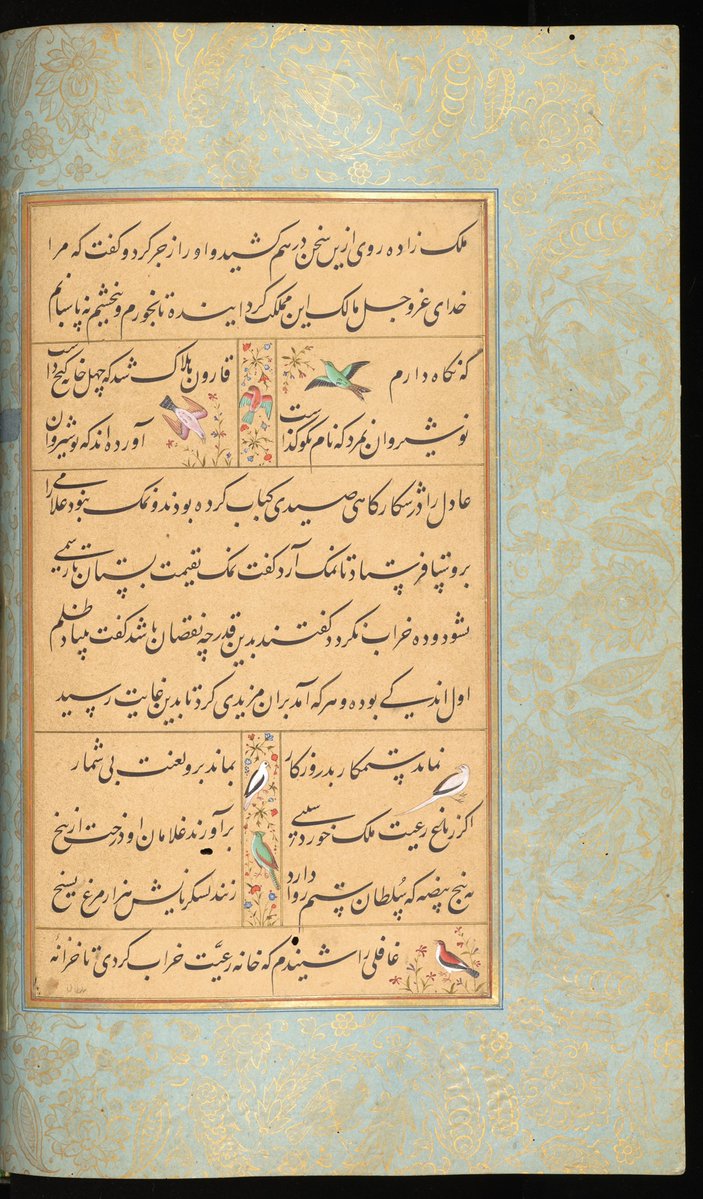 ملک زاده روی ازین سخن درهم کشید و او را زجر کرد و گفت که مرا
خدای عز و جل مالک این مملکت گردانیده تا بخورم و ببخشم نه پاسبانم
که نگاه دارم قارون هلاک شد که چهل خانه گنج داشت
نوشیروان نمرد که نام نکو گذاشت آورده اند که نوشیروان
عادل را در شکارگاهی صیدی کباب کرده بودند و نمک نبود غلامی را
بروستا فرستاد تا نمک آرد گفت نمک بقیمت بستان تا رسمی
نشود و ده خراب نگردد گفتند بدین قدر چه نقصان باشد گفت بنیاد ظلم
اول اندکی بوده و هر که آمد بران مزیدی کرد تا بدین غایت رسید
نماند ستمکار بد روزگار بماند برو لعنت بی شمار
اگر ز باغ رعیت ملک خورد سیبی برآورند غلامان او درخت از بیخ
به پنج بیضه که سلطان ستم روا دارد زنند لشکریانش هزار مرغ بسیخ
غافلی را شنیدم که خانه رعیّت خراب کردی تا خزانهٔ